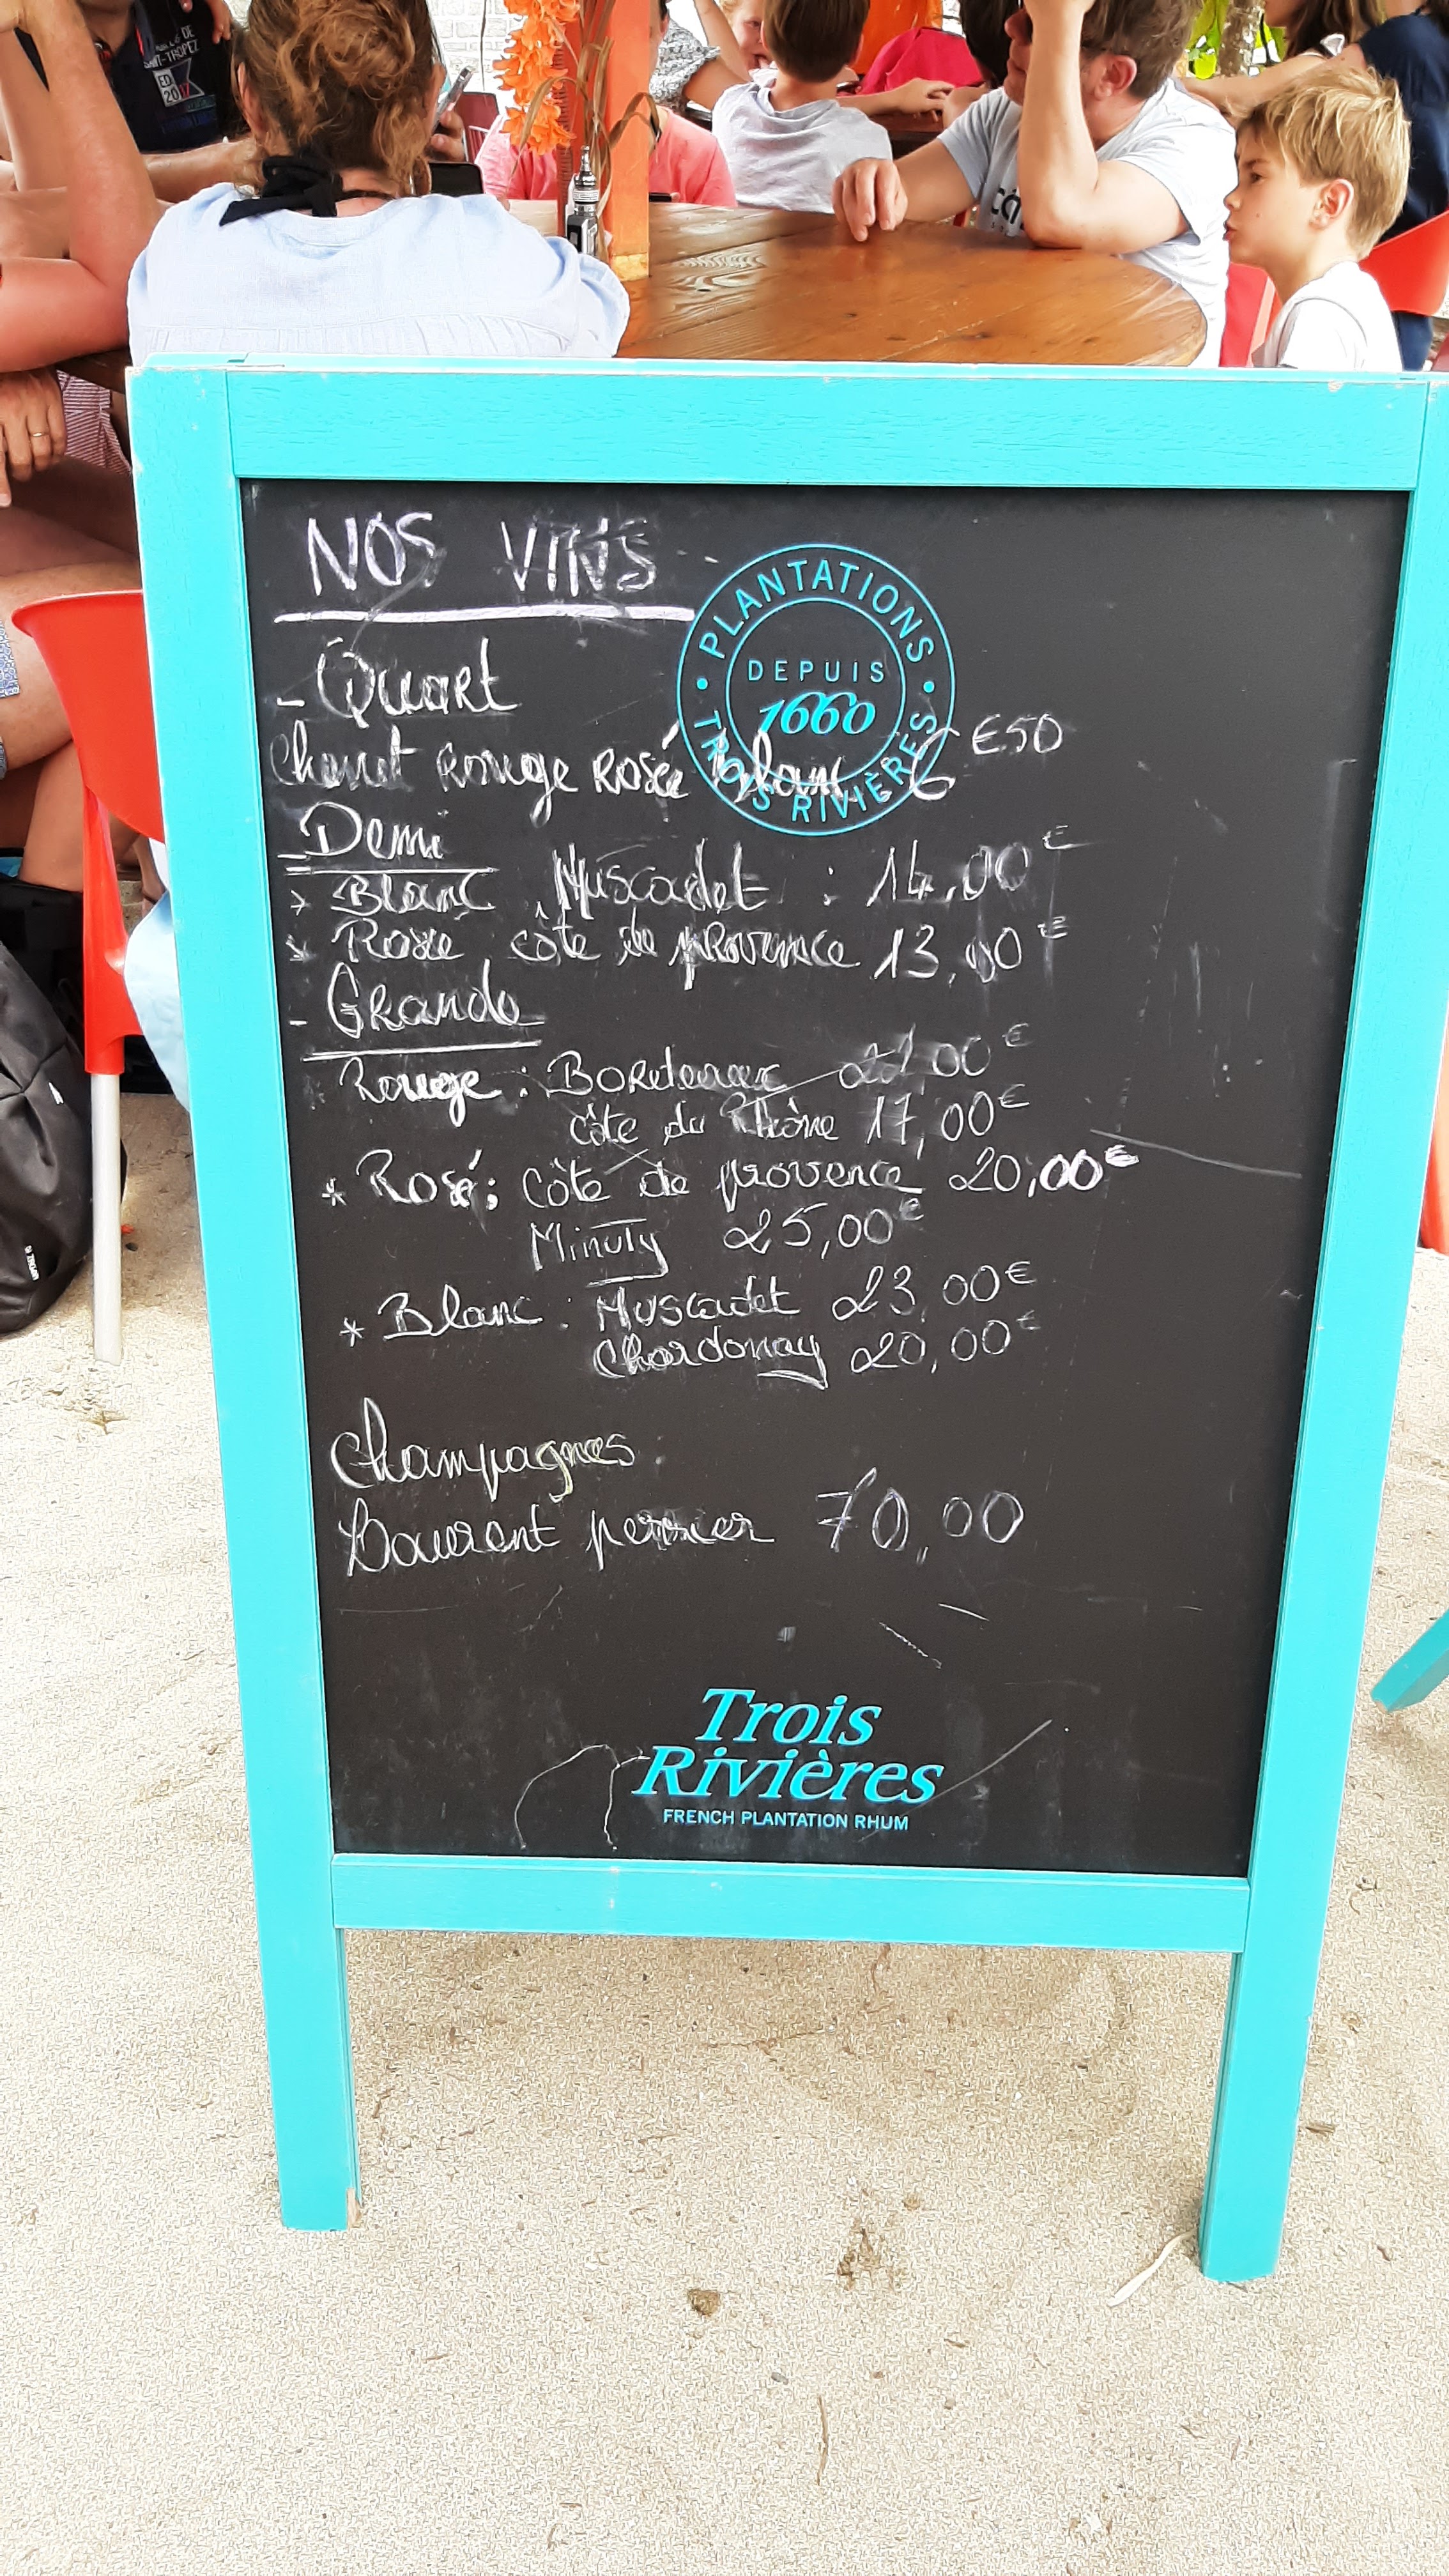 SAINT-TROPEZ
NOS VINS
PLANTATIONS
DEPUIS
1660
TROIS RIVIÈRES
- Quart
Chenet Rouge Rosé blanc 6 €50
- Demi
> Blanc Muscadet : 14,00 €
> Rosé côte de provence 13,00 €
- Grande
* Rouge : Bordeaux 22,00 €
côte du Rhône 17,00 €
* Rosé : Côte de provence 20,00 €
Minuty 25,00 €
* Blanc : Muscadet 23,00 €
Chardonay 20,00 €
Champagnes
Laurent perrier 70,00
Trois
Rivières
FRENCH PLANTATION RHUM